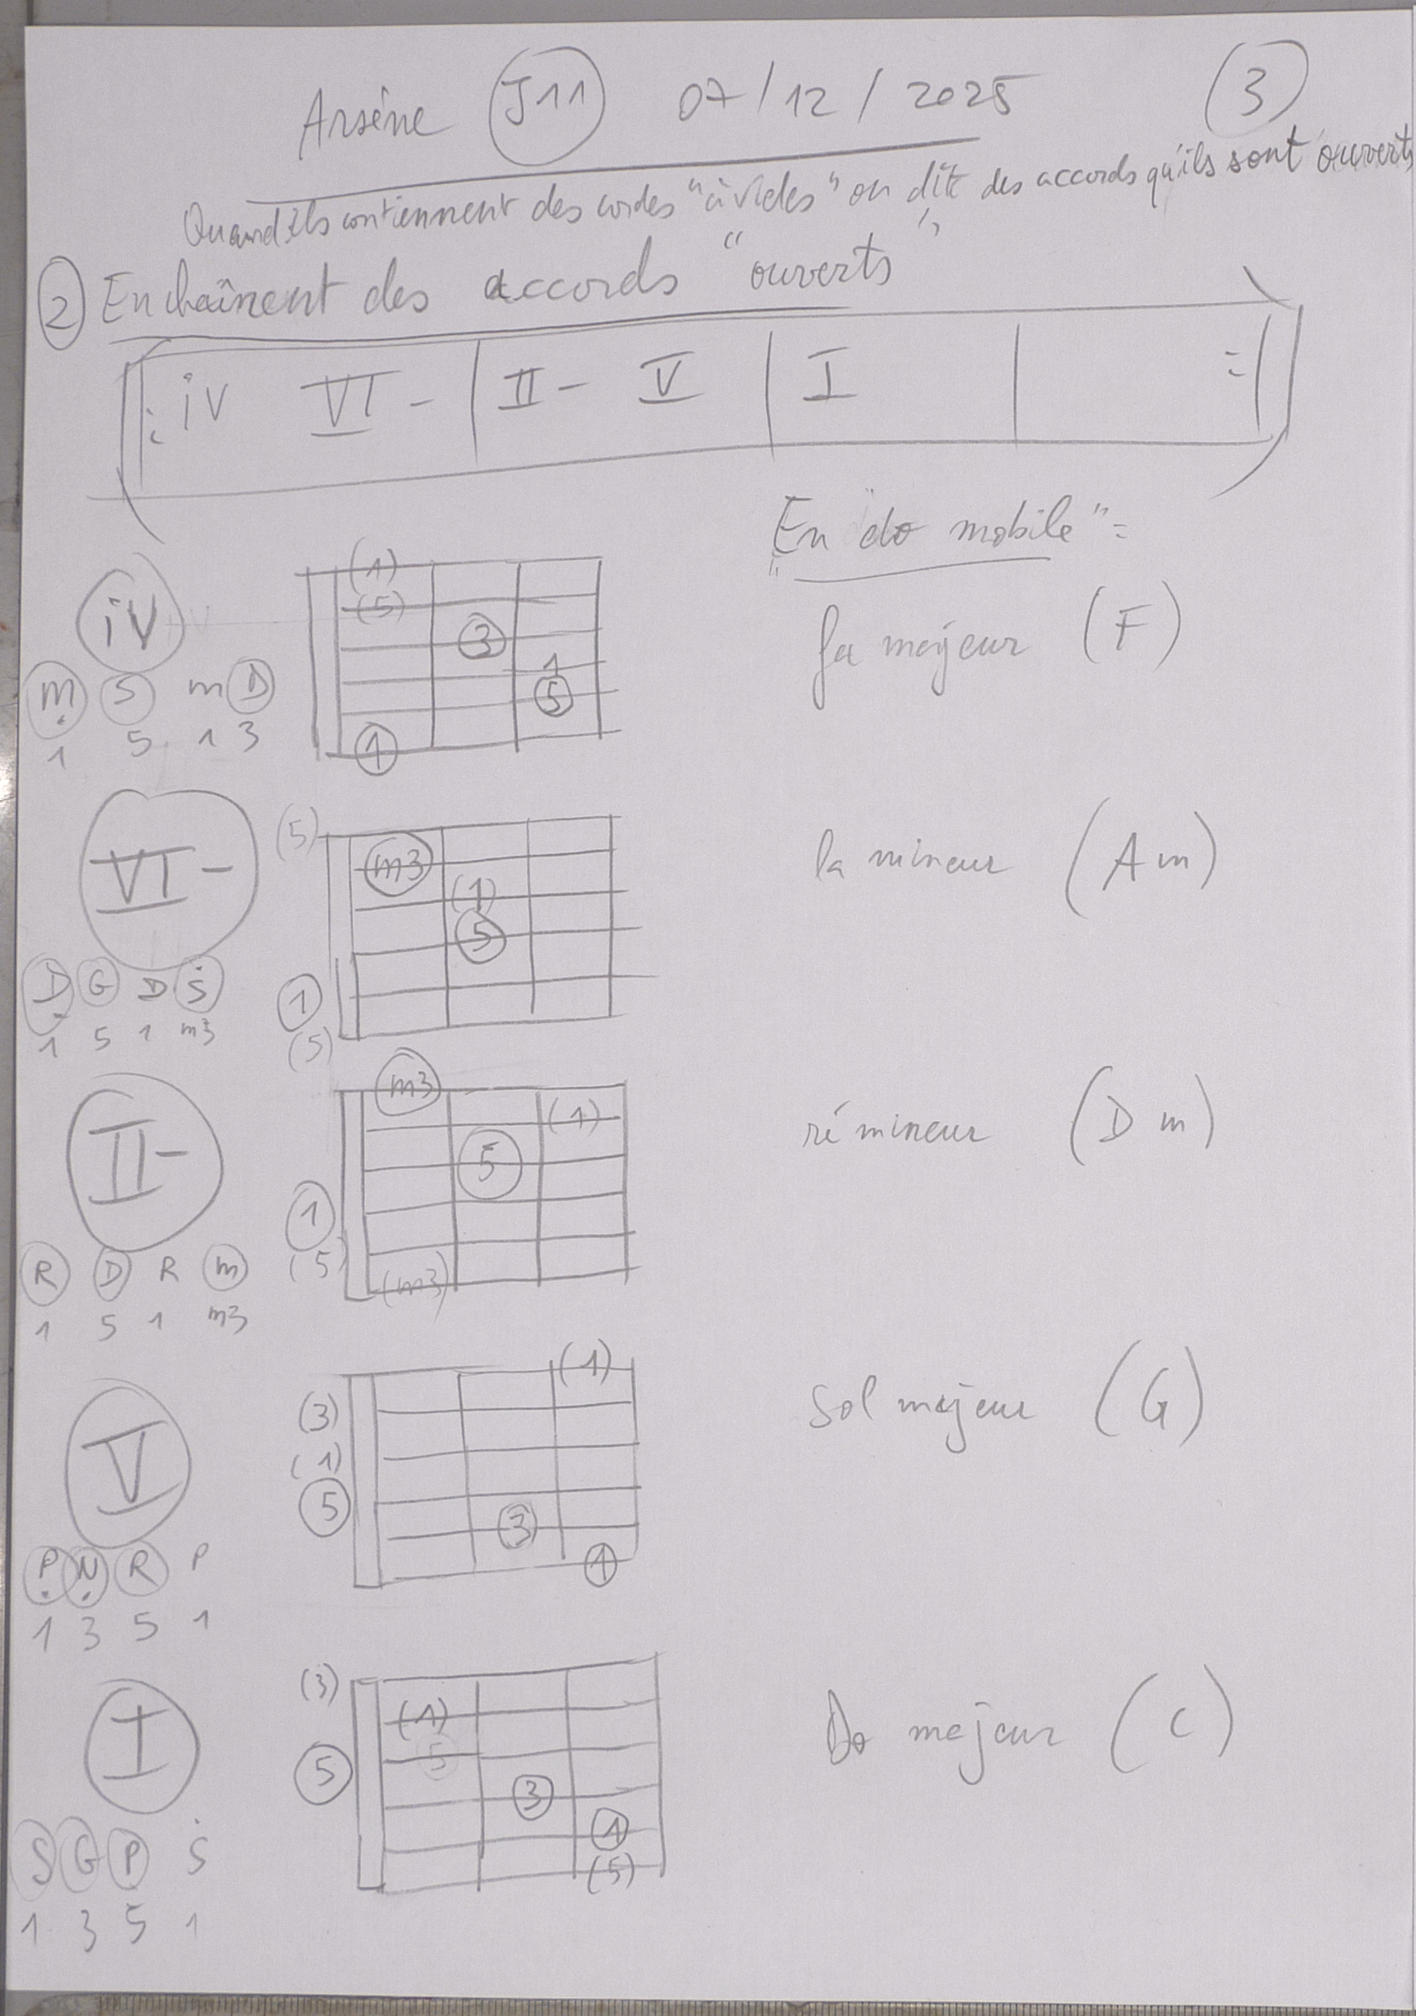 Arsène J11 07/12/2025 3
Quand ils contiennent des cordes "à vides" on dit des accords qu'ils sont "ouverts"
2 Enchaînent des accords "ouverts"
||: iV VI - | II - V | I | :||
"En "do mobile" =
iV
(1)
(5)
3
1
5
1
m S m D
1 5 1 3
fa majeur (F)
VI -
(5)
m3
(1)
5
1
(5)
D G D S
1 5 1 m3
la mineur (Am)
II -
m3
(1)
5
1
(5)
(m3)
R D R m
1 5 1 m3
ré mineur (Dm)
V
(1)
(3)
(1)
5
3
1
P N R P
1 3 5 1
sol majeur (G)
I
(3)
(1)
5
5
3
1
(5)
S G P S
1 3 5 1
Do majeur (C)